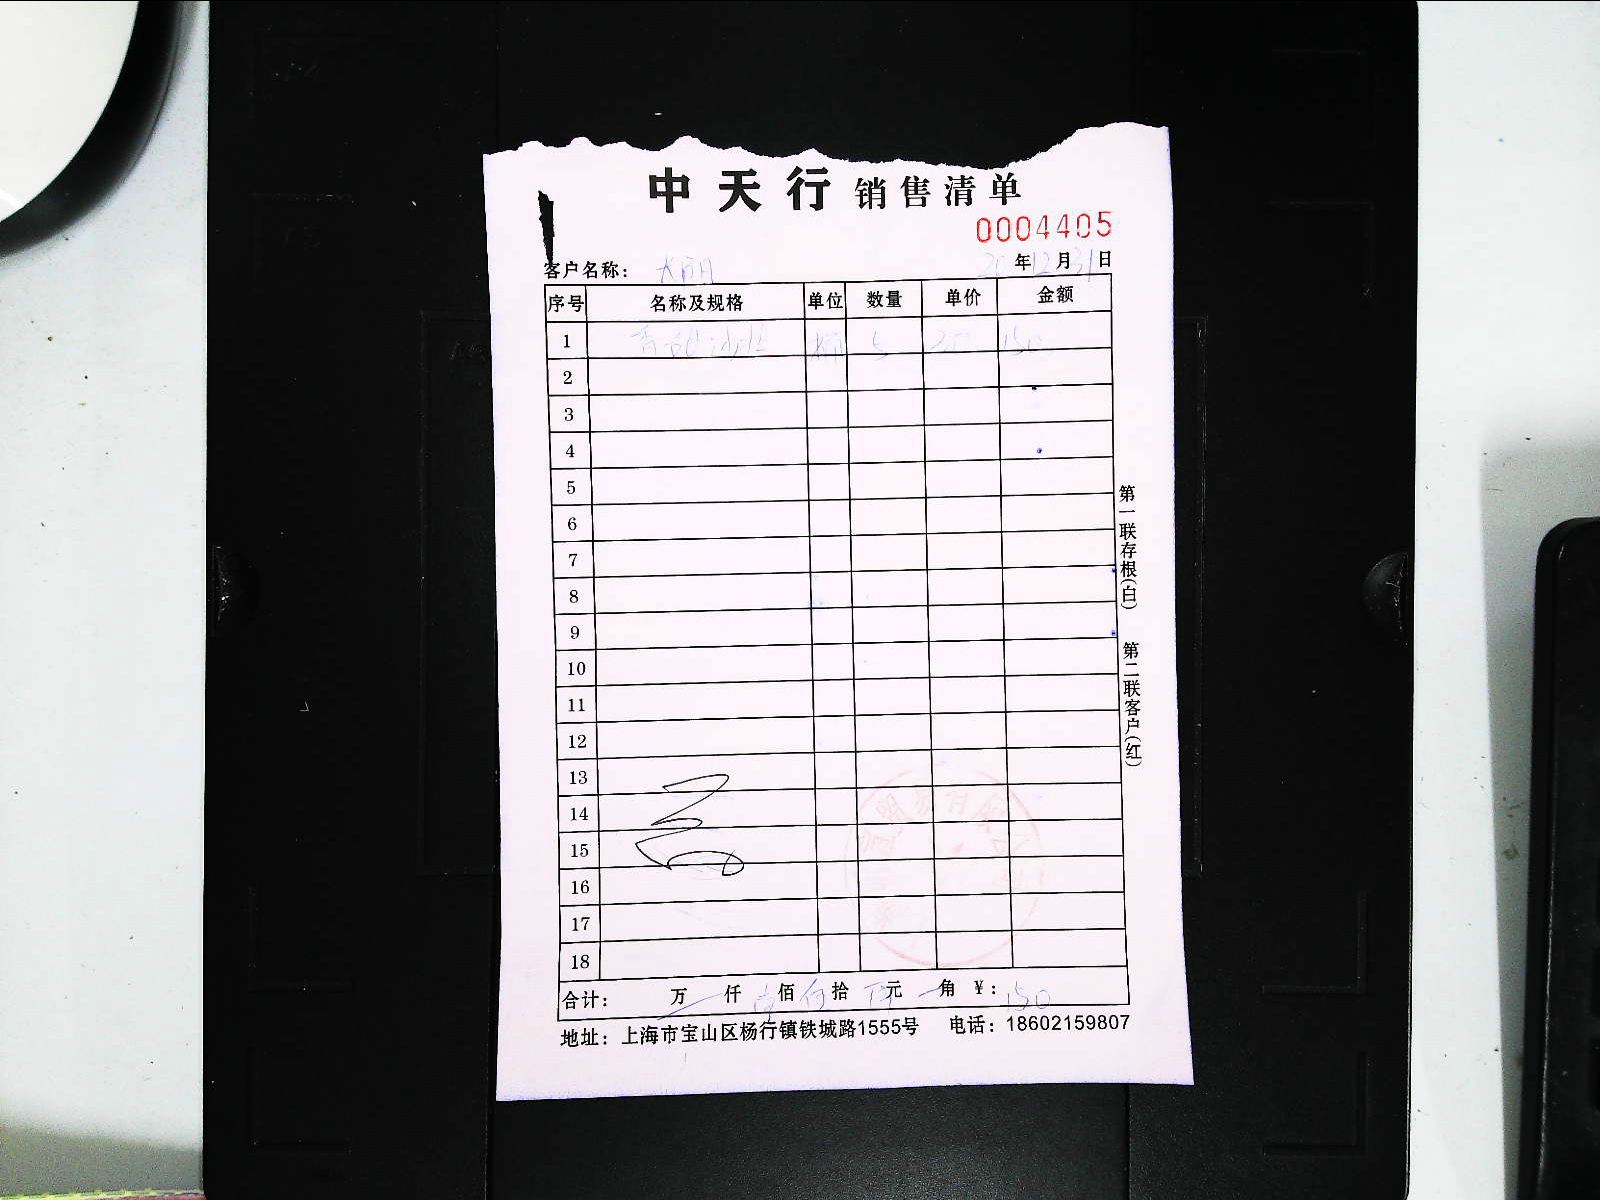 中天行 销售清单
0004405
客户名称： 年12月31日
序号 名称及规格 单位 数量 单价 金额
1 5 150
2
3
4
5
6
7
8
9
10
11
12
13
14
15
16
17
18
合计： 万 仟 佰 拾 元 角 ￥：150
地址：上海市宝山区杨行镇铁城路1555号 电话：18602159807
第一联存根(白) 第二联客户(红)